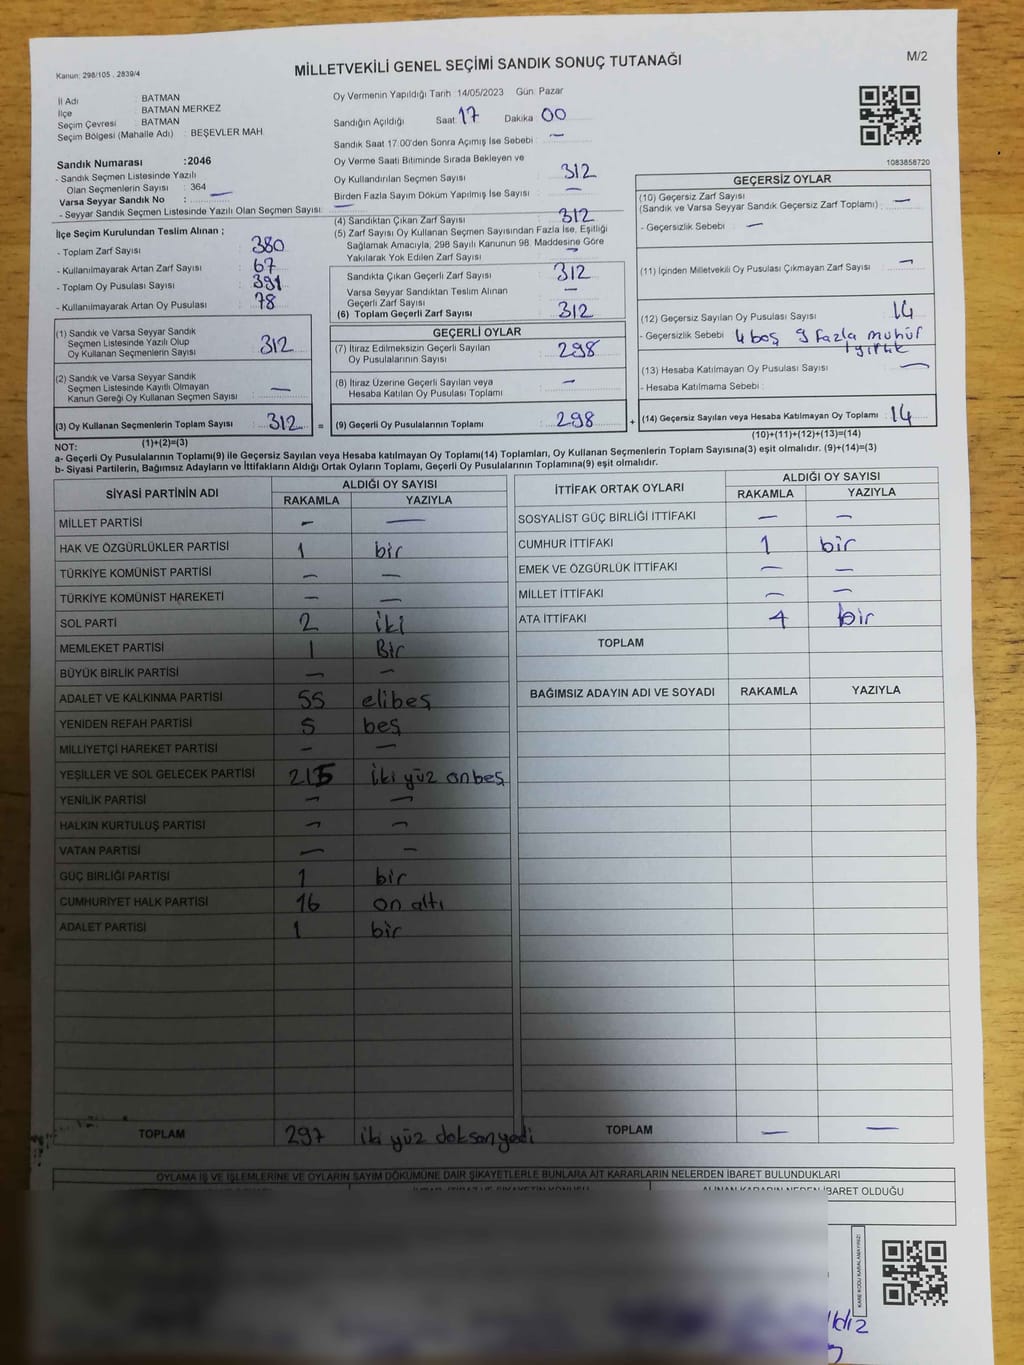 Kanun: 298/105 . 2839/4
MİLLETVEKİLİ GENEL SEÇİMİ SANDIK SONUÇ TUTANAĞI
M/2
İl Adı : BATMAN
İlçe : BATMAN MERKEZ
Seçim Çevresi : BATMAN
Seçim Bölgesi (Mahalle Adı) : BEŞEVLER MAH.
Sandık Numarası :2046
- Sandık Seçmen Listesinde Yazılı
Olan Seçmenlerin Sayısı : 364
Varsa Seyyar Sandık No : —
- Seyyar Sandık Seçmen Listesinde Yazılı Olan Seçmen Sayısı: —
İlçe Seçim Kurulundan Teslim Alınan ;
- Toplam Zarf Sayısı : 380
- Kullanılmayarak Artan Zarf Sayısı : 67
- Toplam Oy Pusulası Sayısı : 391
- Kullanılmayarak Artan Oy Pusulası : 78
(1) Sandık ve Varsa Seyyar Sandık
Seçmen Listesinde Yazılı Olup
Oy Kullanan Seçmenlerin Sayısı : 312
(2) Sandık ve Varsa Seyyar Sandık
Seçmen Listesinde Kayıtlı Olmayan
Kanun Gereği Oy Kullanan Seçmen Sayısı : —
(3) Oy Kullanan Seçmenlerin Toplam Sayısı : 312 =
(1)+(2)=(3)
Oy Vermenin Yapıldığı Tarih 14/05/2023 Gün Pazar
Sandığın Açıldığı Saat: 17 Dakika 00
Sandık Saat 17.00'den Sonra Açımış İse Sebebi : —
Oy Verme Saati Bitiminde Sırada Bekleyen ve
Oy Kullandırılan Seçmen Sayısı : 312
Birden Fazla Sayım Döküm Yapılmış İse Sayısı : —
(4) Sandıktan Çıkan Zarf Sayısı : 312
(5) Zarf Sayısı Oy Kullanan Seçmen Sayısından Fazla İse, Eşitliği
Sağlamak Amacıyla, 298 Sayılı Kanunun 98. Maddesine Göre
Yakılarak Yok Edilen Zarf Sayısı : —
Sandıkta Çıkan Geçerli Zarf Sayısı : 312
Varsa Seyyar Sandıktan Teslim Alınan
Geçerli Zarf Sayısı : —
(6) Toplam Geçerli Zarf Sayısı : 312
GEÇERLİ OYLAR
(7) İtiraz Edilmeksizin Geçerli Sayılan
Oy Pusulalarının Sayısı : 298
(8) İtiraz Üzerine Geçerli Sayılan veya
Hesaba Katılan Oy Pusulası Toplamı : —
(9) Geçerli Oy Pusulalarının Toplamı : 298 +
1083858720
GEÇERSİZ OYLAR
(10) Geçersiz Zarf Sayısı
(Sandık ve Varsa Seyyar Sandık Geçersiz Zarf Toplamı) : —
- Geçersizlik Sebebi : —
(11) İçinden Milletvekili Oy Pusulası Çıkmayan Zarf Sayısı : —
(12) Geçersiz Sayılan Oy Pusulası Sayısı : 14
- Geçersizlik Sebebi : 4 boş 9 fazla mühür
1 yırtık
(13) Hesaba Katılmayan Oy Pusulası Sayısı : —
- Hesaba Katılmama Sebebi :
(14) Geçersiz Sayılan veya Hesaba Katılmayan Oy Toplamı : 14
(10)+(11)+(12)+(13)=(14)
NOT:
a- Geçerli Oy Pusulalarının Toplamı(9) ile Geçersiz Sayılan veya Hesaba katılmayan Oy Toplamı(14) Toplamları, Oy Kullanan Seçmenlerin Toplam Sayısına(3) eşit olmalıdır. (9)+(14)=(3)
b- Siyasi Partilerin, Bağımsız Adayların ve İttifakların Aldığı Ortak Oyların Toplamı, Geçerli Oy Pusulalarının Toplamına(9) eşit olmalıdır.
SİYASİ PARTİNİN ADI ALDIĞI OY SAYISI
RAKAMLA YAZIYLA
MİLLET PARTİSİ — —
HAK VE ÖZGÜRLÜKLER PARTİSİ 1 bir
TÜRKİYE KOMÜNİST PARTİSİ — —
TÜRKİYE KOMÜNİST HAREKETİ — —
SOL PARTİ 2 iki
MEMLEKET PARTİSİ 1 Bir
BÜYÜK BİRLİK PARTİSİ — —
ADALET VE KALKINMA PARTİSİ 55 elibeş
YENİDEN REFAH PARTİSİ 5 beş
MİLLİYETÇİ HAREKET PARTİSİ — —
YEŞİLLER VE SOL GELECEK PARTİSİ 215 iki yüz onbeş
YENİLİK PARTİSİ — —
HALKIN KURTULUŞ PARTİSİ — —
VATAN PARTİSİ — —
GÜÇ BİRLİĞİ PARTİSİ 1 bir
CUMHURİYET HALK PARTİSİ 16 on altı
ADALET PARTİSİ 1 bir
TOPLAM 297 iki yüz doksan yedi
İTTİFAK ORTAK OYLARI ALDIĞI OY SAYISI
RAKAMLA YAZIYLA
SOSYALİST GÜÇ BİRLİĞİ İTTİFAKI — —
CUMHUR İTTİFAKI 1 bir
EMEK VE ÖZGÜRLÜK İTTİFAKI — —
MİLLET İTTİFAKI — —
ATA İTTİFAKI 1 bir
TOPLAM
BAĞIMSIZ ADAYIN ADI VE SOYADI RAKAMLA YAZIYLA
TOPLAM — —
OYLAMA İŞ VE İŞLEMLERİNE VE OYLARIN SAYIM DÖKÜMÜNE DAİR ŞİKAYETLERLE BUNLARA AİT KARARLARIN NELERDEN İBARET BULUNDUKLARI
ALINAN KARARIN NEDEN İBARET OLDUĞU
KARE KODU KARALAMAYINIZ!